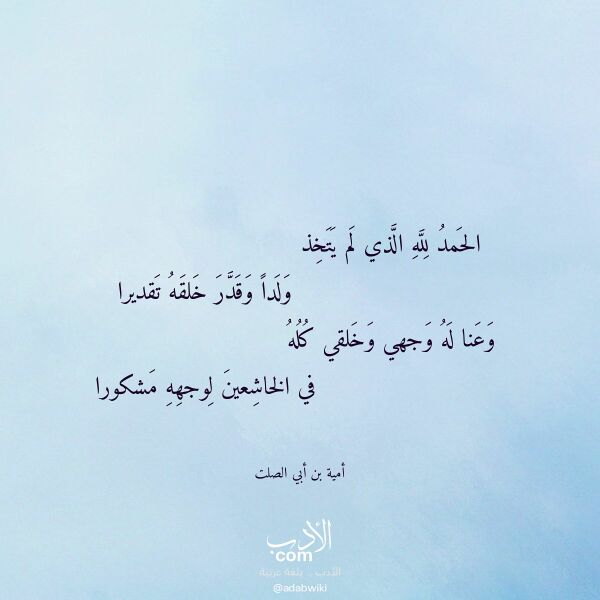 الحَمدُ لِلَّهِ الَّذي لَم يَتَخِذ
وَلَداً وَقَدَّرَ خَلقَهُ تَقديرا
وَعَنا لَهُ وَجهي وَخَلقي كُلُهُ
في الخاشِعينَ لِوجهِهِ مَشكورا
أمية بن أبي الصلت
الأدب
com
الأدب .. بلغة عربية
@adabwiki